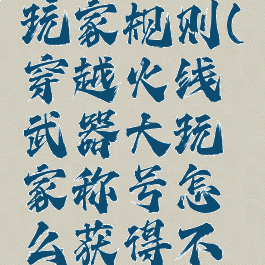 玩家规则(
穿越火线
武器大玩
家称号怎
么获得不